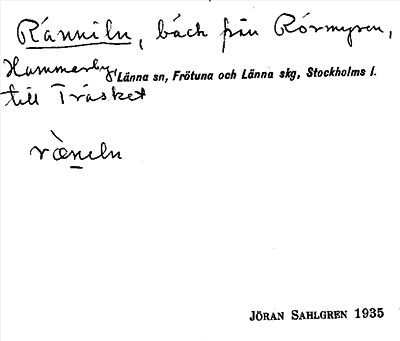 Ränniln, bäck från Rörmyren,
Hammarby, Länna sn, Frötuna och Länna skg, Stockholms l.
till Träsket
ræneln
JÖRAN SAHLGREN 1935